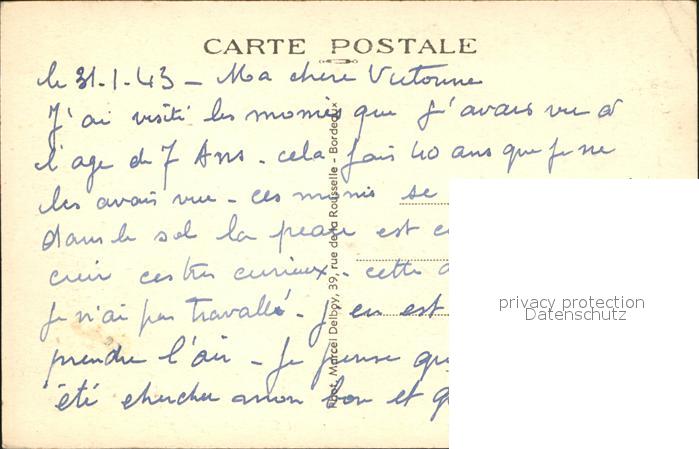 CARTE POSTALE
le 31-1-43 - Ma chère Victorine
J'ai visité les momies que j'avais vu à
l'age de 7 Ans - cela fais 40 ans que je ne
les avais vue - ces momis se
dans le sol la peau est
cuir ces tres curieux - cette
je n'ai pas travallé - j'en est
prendre l'air - je pense
été chercher mon bon et
Phot. Marcel Delboy, 39, rue de la Rousselle - Bordeaux
privacy protection
Datenschutz